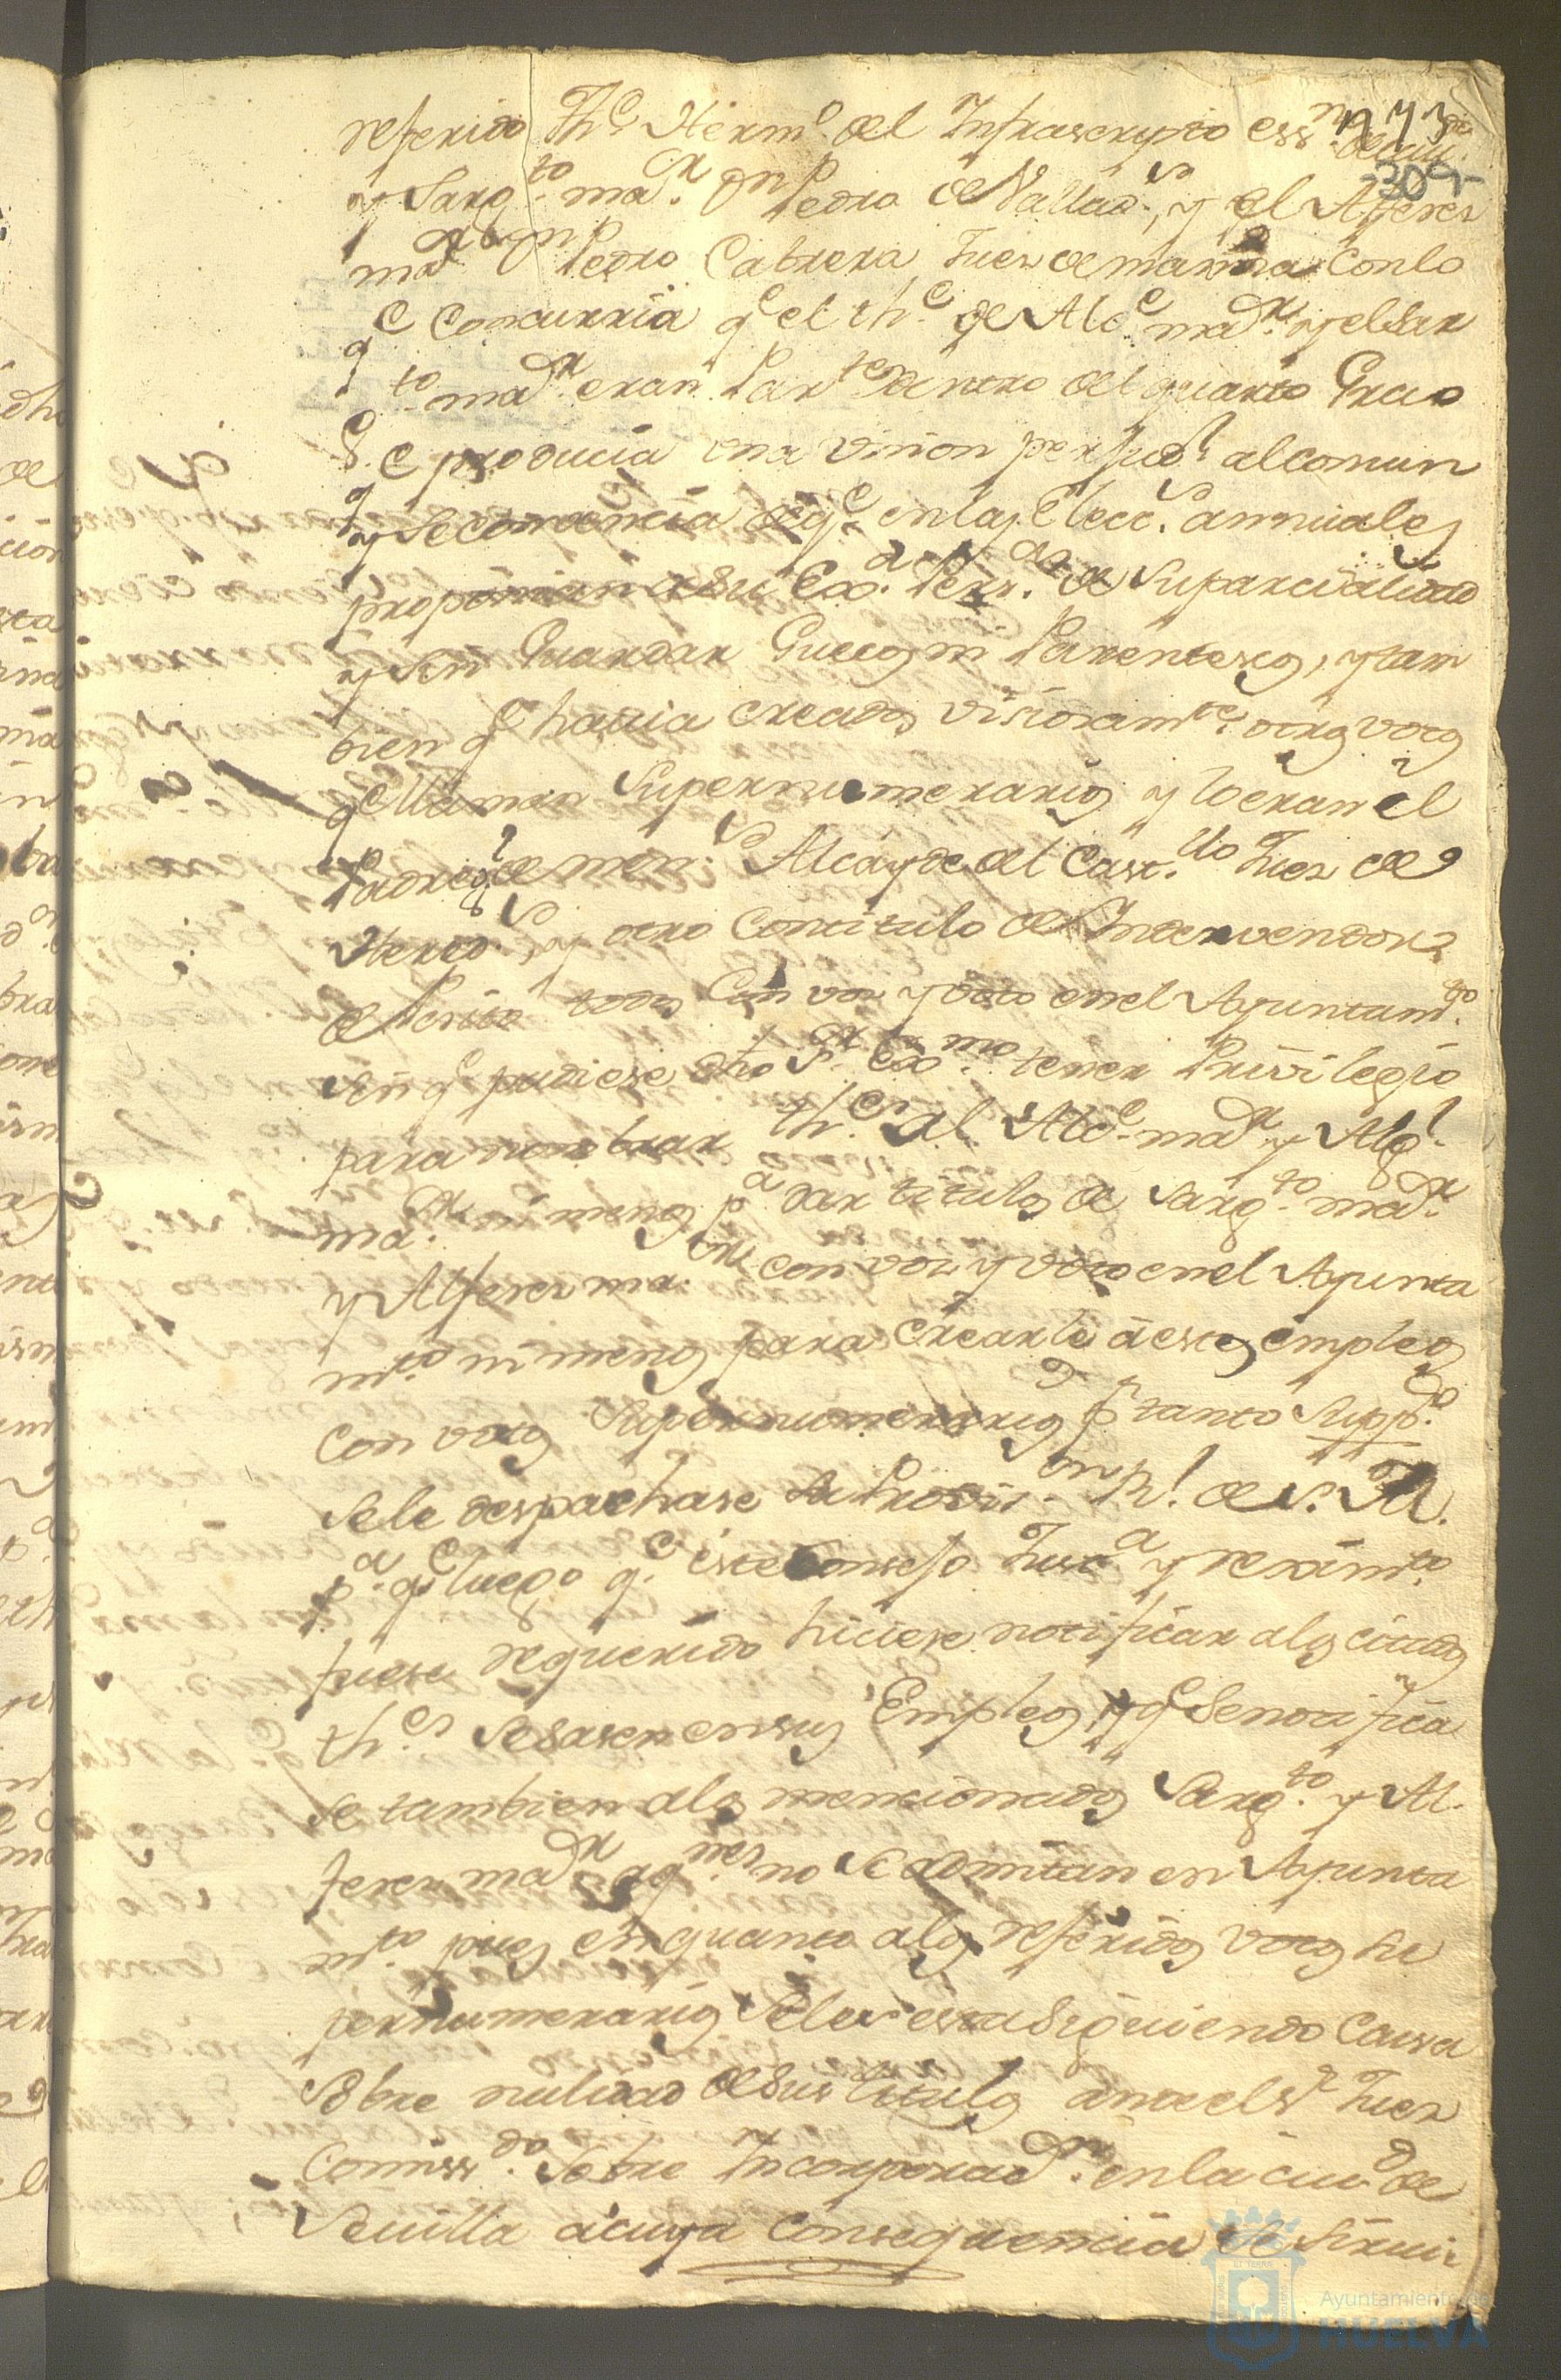 173
-309-
referido Th.e Herm.o del Infrascripto ess.no
y Sarg.to ma.r Dn Pedro de Vallad.s, y el Alferes
mar Dn Pedro Cabrera Juez de marina Conlo
q.e Concurria q.e el th.e de Alc.e mar. y el Sar
g.to mar eran Par.tes dentro del quarto Grado
q.e producia una vnion perjud.l al comun
y Se conocia deq.e enlas Elecc.s annuales
proponian a Su Exa. Pers.as de Suparcialidad
y Sin Guardar Guecos ni Parentescos, y tam
bien q.e hauia creados otros votos
q.e llaman Supernumerarios y lo eran el
Padre de men.s Alcayde del Cast.llo Juez de
Hered.s, y otro Contitulo de Interventor
de todos Con voz y voto enel Ayuntam.to
Sin q.e pudiese dho S.r Exmo tener Privilegio
para nombrar th.es Al Alc.e mar y Alg.l
ma.r ni menos p.a dar titulos de Sarg.to mar
y Alferes ma.r con voz y voto enel Ayunta
m.to ni menos para crearle á estos empleos
Con votos Supernumerarios p.r tanto Supp.co
Sele despachase la Provis.on R.l de S. M.
p.a q.e luego q.e este Consejo Just.a y reximto
fuese requerido hiciese notificar alos citados
th.es Sesasen ensus Empleos, y q.e Senotifica
se tambien alos mencionados Sarg.to y Al
feres mar aq.nes no Se admitan en Ayunta
m.to pues enquanto alos referidos votos su
pernumerarios Seles esta Siguiendo Causa
Sobre nulidad de Sus titulos ante el S.r Juez
Comiss.do Sobre Incorporad.n enla ciu.d de
Seuilla acuya Consequencia Se Siruio
Ayuntamiento de
HUELVA